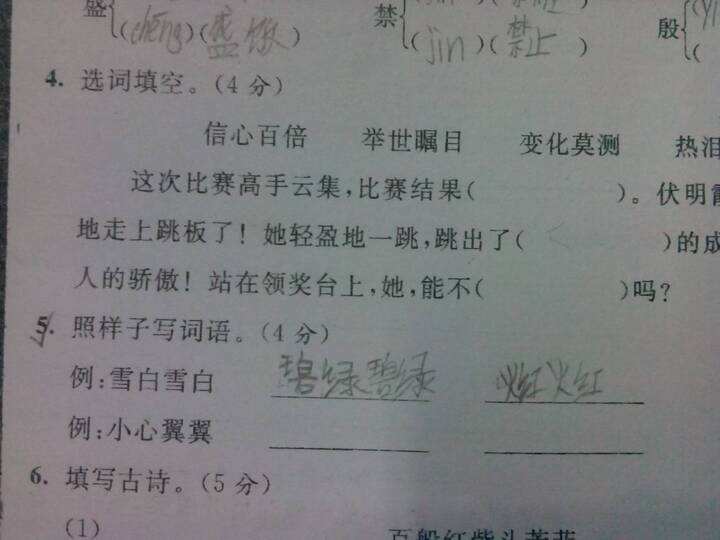 盛 (chēng)(盛饭) 禁 (jīn)(禁止) 殷
4. 选词填空。(4分)
信心百倍 举世瞩目 变化莫测 热泪
这次比赛高手云集,比赛结果( )。伏明
地走上跳板了!她轻盈地一跳,跳出了( )的成
人的骄傲!站在领奖台上,她,能不( )吗?
5. 照样子写词语。(4分)
例:雪白雪白 碧绿碧绿 火红火红
例:小心翼翼
6. 填写古诗。(5分)
(1)